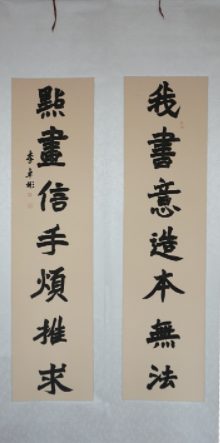 我書意造本無法
點畫信手煩推求
李卓彬